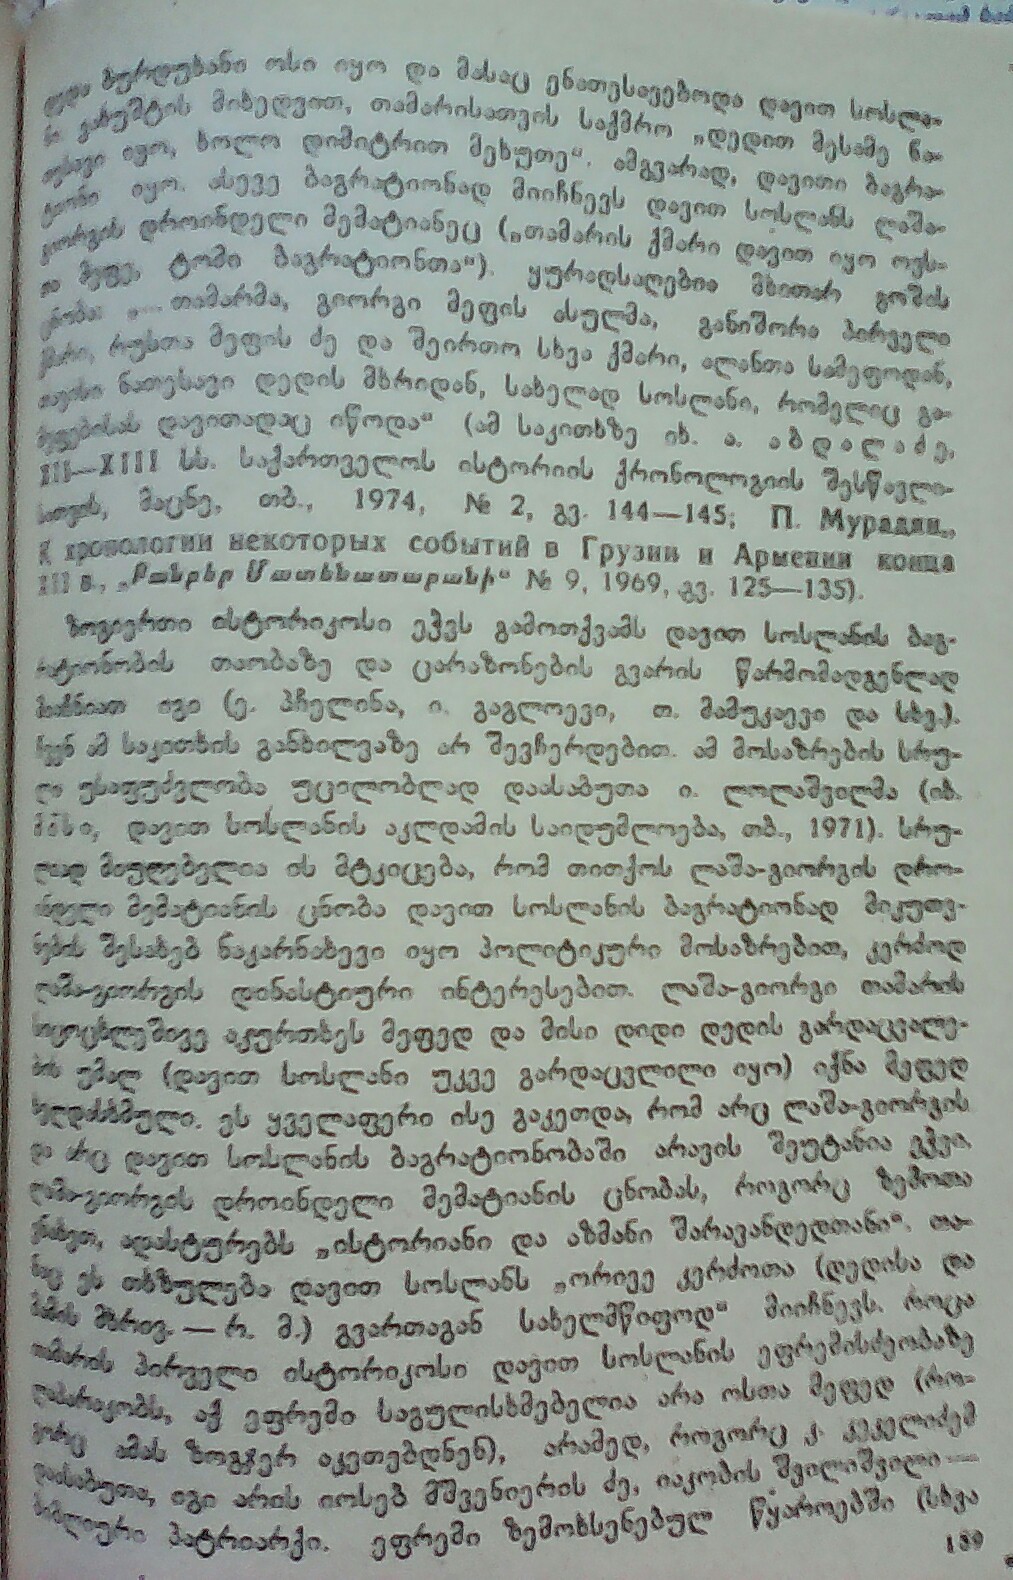 დედა ბურდუხანი ოსი იყო და მასაც ენათესავებოდა დავით სოსლა-
ნი ვახუშტის მიხედვით, თამარისათვის საქმრო „დედით მესამე ნა-
თესავი იყო, ხოლო დიმიტრით მეხუთე“. ამგვარად, დავითი ბაგრა-
ტიონი იყო. ასევე ბაგრატიონად მიიჩნევს დავით სოსლანს ლაშა-
გიორგის დროინდელი მემატიანეც („თამარის ქმარი დავით იყო ოვს-
თა მეფე, ტომი ბაგრატიონთა“). ყურადსაღებია მხითარ გოშის
ცნობა: „... თამარმა, გიორგი მეფის ასულმა, განიშორა პირველი
ქმარი, რუსთა მეფის ძე და შეირთო სხვა ქმარი, ალანთა სამეფოდან,
თავისი ნათესავი დედის მხრიდან, სახელად სოსლანი, რომელიც გა-
მეფებისას დავითადაც იწოდა“ (ამ საკითხზე იხ. ა. აბდალაძე,
XII—XIII სს. საქართველოს ისტორიის ქრონოლოგიის შესწავლი-
სათვის, მაცნე, თბ., 1974, № 2, გვ. 144—145; П. Мурадян,
К хронологии некоторых событий в Грузии и Армении конца
XII в., „Բանբեր Մատենադարանի“ № 9, 1969, გვ. 125—135).
ზოგიერთი ისტორიკოსი ეჭვს გამოთქვამს დავით სოსლანის ბაგ-
რატიონობის თაობაზე და ცარაზონების გვარის წარმომადგენლად
მიიჩნიათ იგი (ე. პჩელინა, ი. გაგლოევი, თ. მამუკაევი და სხვ.).
ჩვენ ამ საკითხის განხილვაზე არ შევჩერდებით. ამ მოსაზრების სრუ-
ლი უსაფუძვლობა უცილობლად დაასაბუთა ი. ლოლაშვილმა (იხ.
მისი, დავით სოსლანის აკლდამის საიდუმლოება, თბ., 1971). სრუ-
ლიად მიუღებელია ის მტკიცება, რომ თითქოს ლაშა-გიორგის დრო-
ინდელი მემატიანის ცნობა დავით სოსლანის ბაგრატიონად მიკუთვ-
ნების შესახებ ნაკარნახევი იყო პოლიტიკური მოსაზრებით, კერძოდ
ლაშა-გიორგის დინასტიური ინტერესებით. ლაშა-გიორგი თამარის
სიცოცხლეშივე აკურთხეს მეფედ და მისი დიდი დედის გარდაცვალე-
ბის უმალ (დავით სოსლანი უკვე გარდაცვლილი იყო) იქნა მეფედ
ხელდასხმული. ეს ყველაფერი ისე გაკეთდა, რომ არც ლაშა-გიორგის
და არც დავით სოსლანის ბაგრატიონობაში არავის შეუტანია ეჭვი.
ლაშა-გიორგის დროინდელი მემატიანის ცნობას, როგორც ზემოთა
ვნახეთ, ადასტურებს „ისტორიანი და აზმანი შარავანდედთანი“. თა-
ნაც ეს თხზულება დავით სოსლანს „ორივე კერძოთა (დედისა და
მამის მხრივ. — რ. მ.) გვართაგან სახელმწიფოდ“ მიიჩნევს. როცა
თამარის პირველი ისტორიკოსი დავით სოსლანის ეფრემისძეობაზე
ლაპარაკობს, აქ ეფრემი საგულისხმებელია არა ოსთა მეფედ (რო-
გორც ამას ზოგჯერ აკეთებდნენ), არამედ, როგორც კ. კეკელიძემ
დაასაბუთა, იგი არის იოსებ მშვენიერის ძე, იაკობის შვილიშვილი —
ბიბლიური პატრიარქი. ეფრემი ზემოხსენებულ წყაროებში (სხვა
189